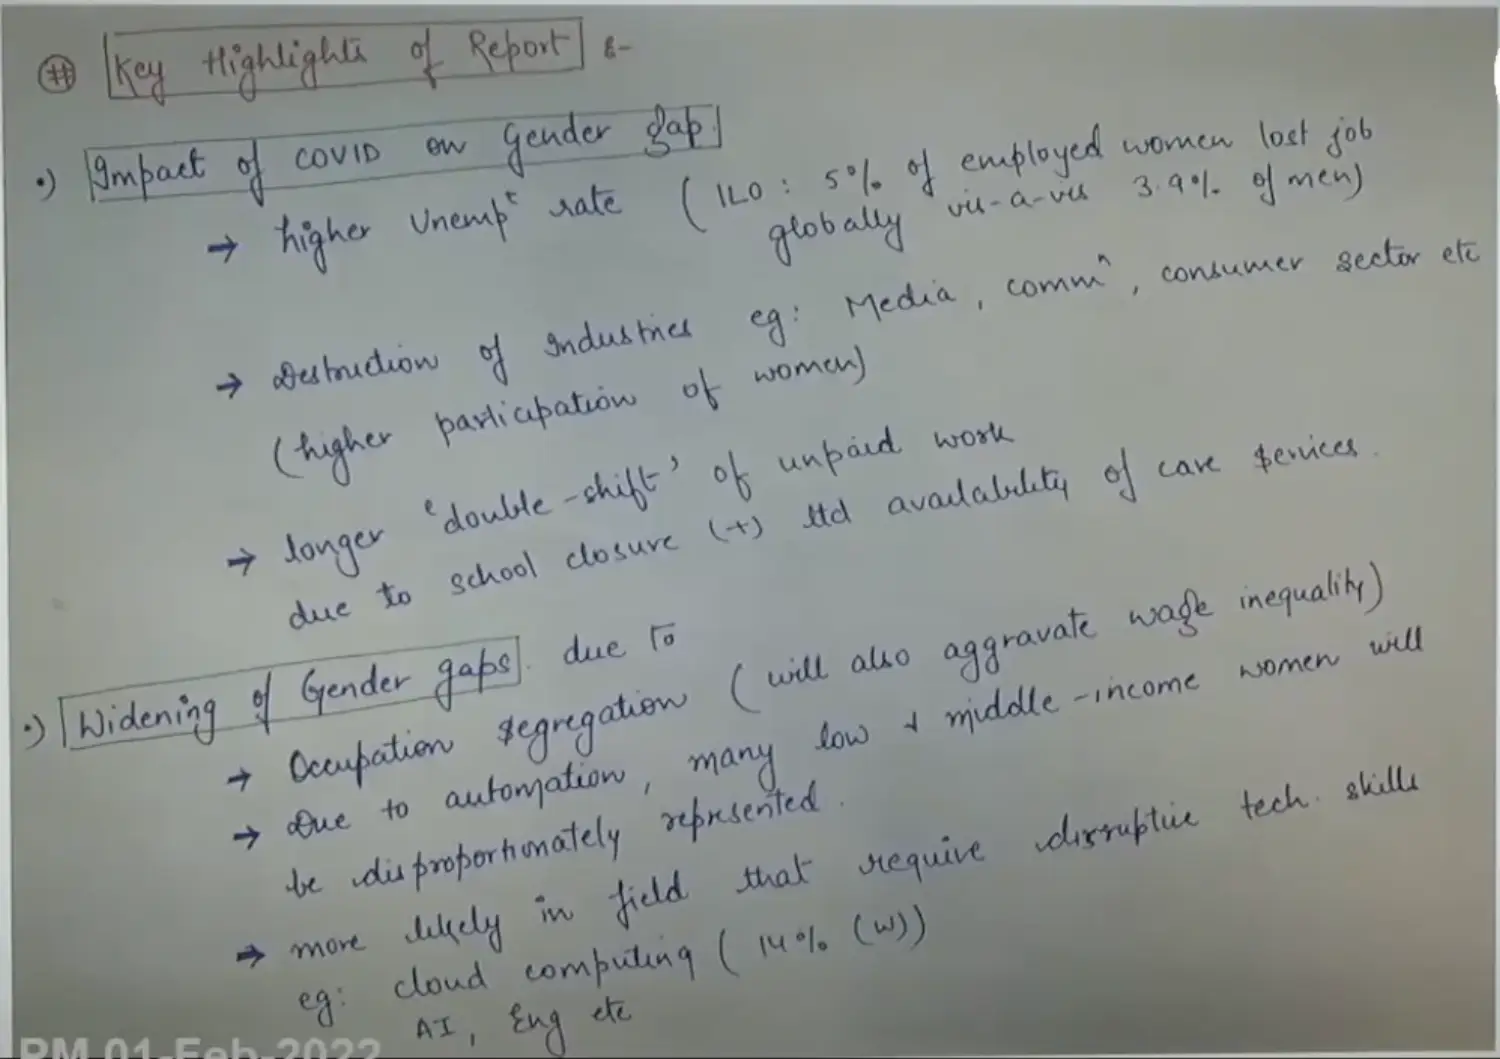 # Key Highlights of Report :-
•) Impact of COVID on Gender gap.
→ higher Unempt rate ( ILO : 5% of employed women lost job
globally vis-a-vis 3.9% of men)
→ Destruction of Industries eg: Media, commn, consumer sector etc
(higher participation of women)
→ longer 'double-shift' of unpaid work
due to school closure (+) ltd availability of care services.
•) Widening of Gender gaps. due to
→ Occupation segregation ( will also aggravate wage inequality)
→ Due to automation, many low & middle-income women will
be disproportionately represented.
→ more likely in field that require disruptive tech. skills
eg: cloud computing ( 14% (W))
AI, Eng etc
PM 01-Feb-2022